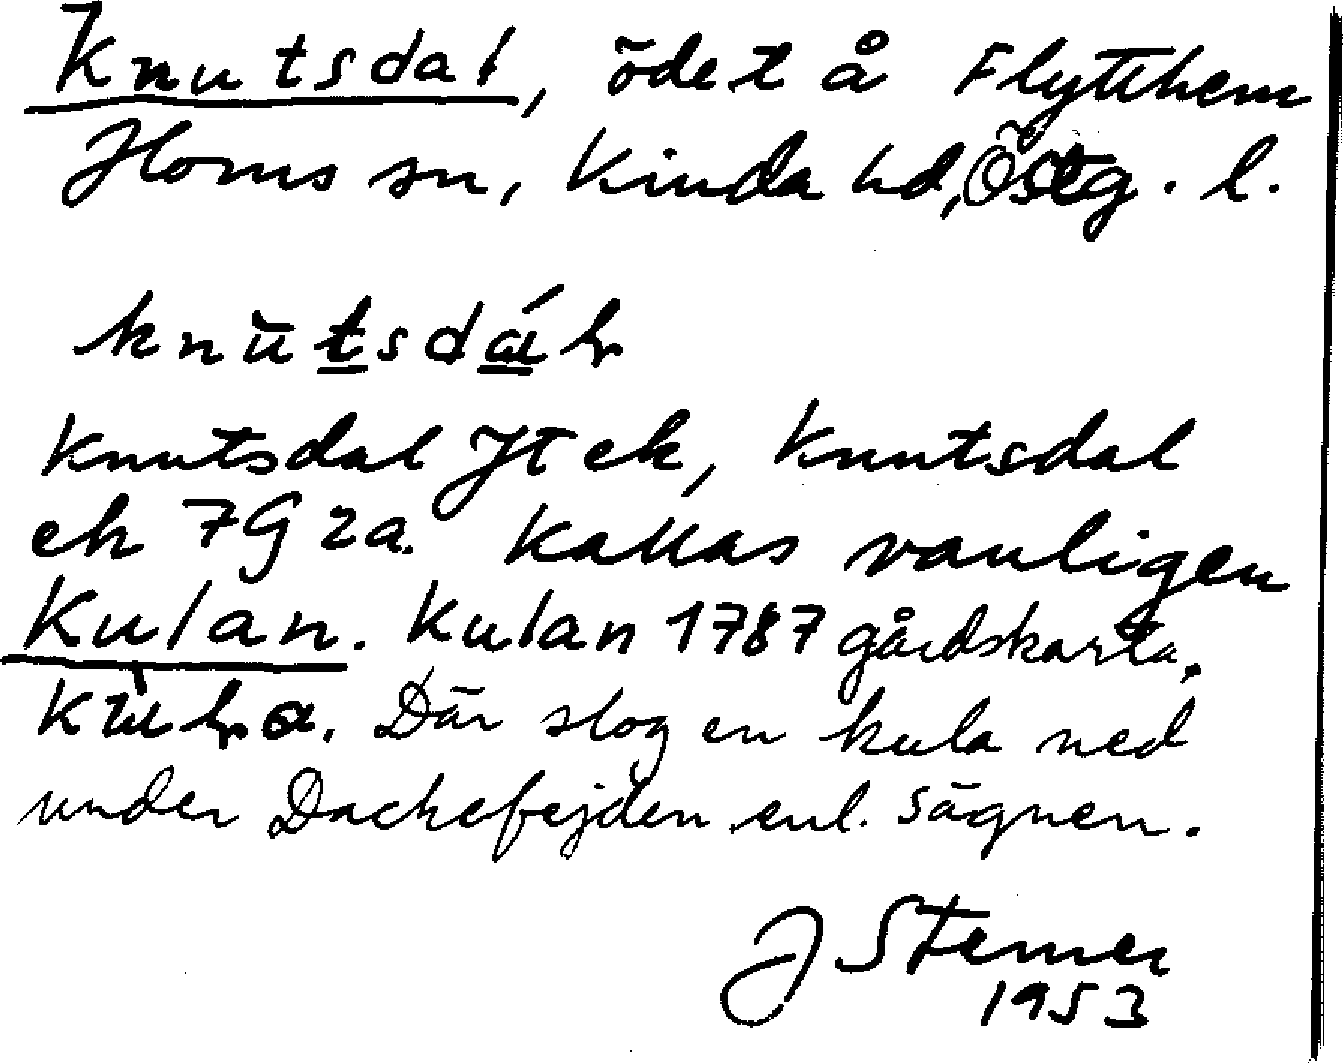 Knutsdal, ödet å Flytthem
Horns sn, Kinda hd, Östg. l.
Knutsdal Jt ek, Knutsdal
ek 7G 2a. Kallas vanligen
Kulan. Kulan 1787 gårdskarta.
Där slog en kula ned
under Dackefejden enl. sägnen.
J Sterner
1953